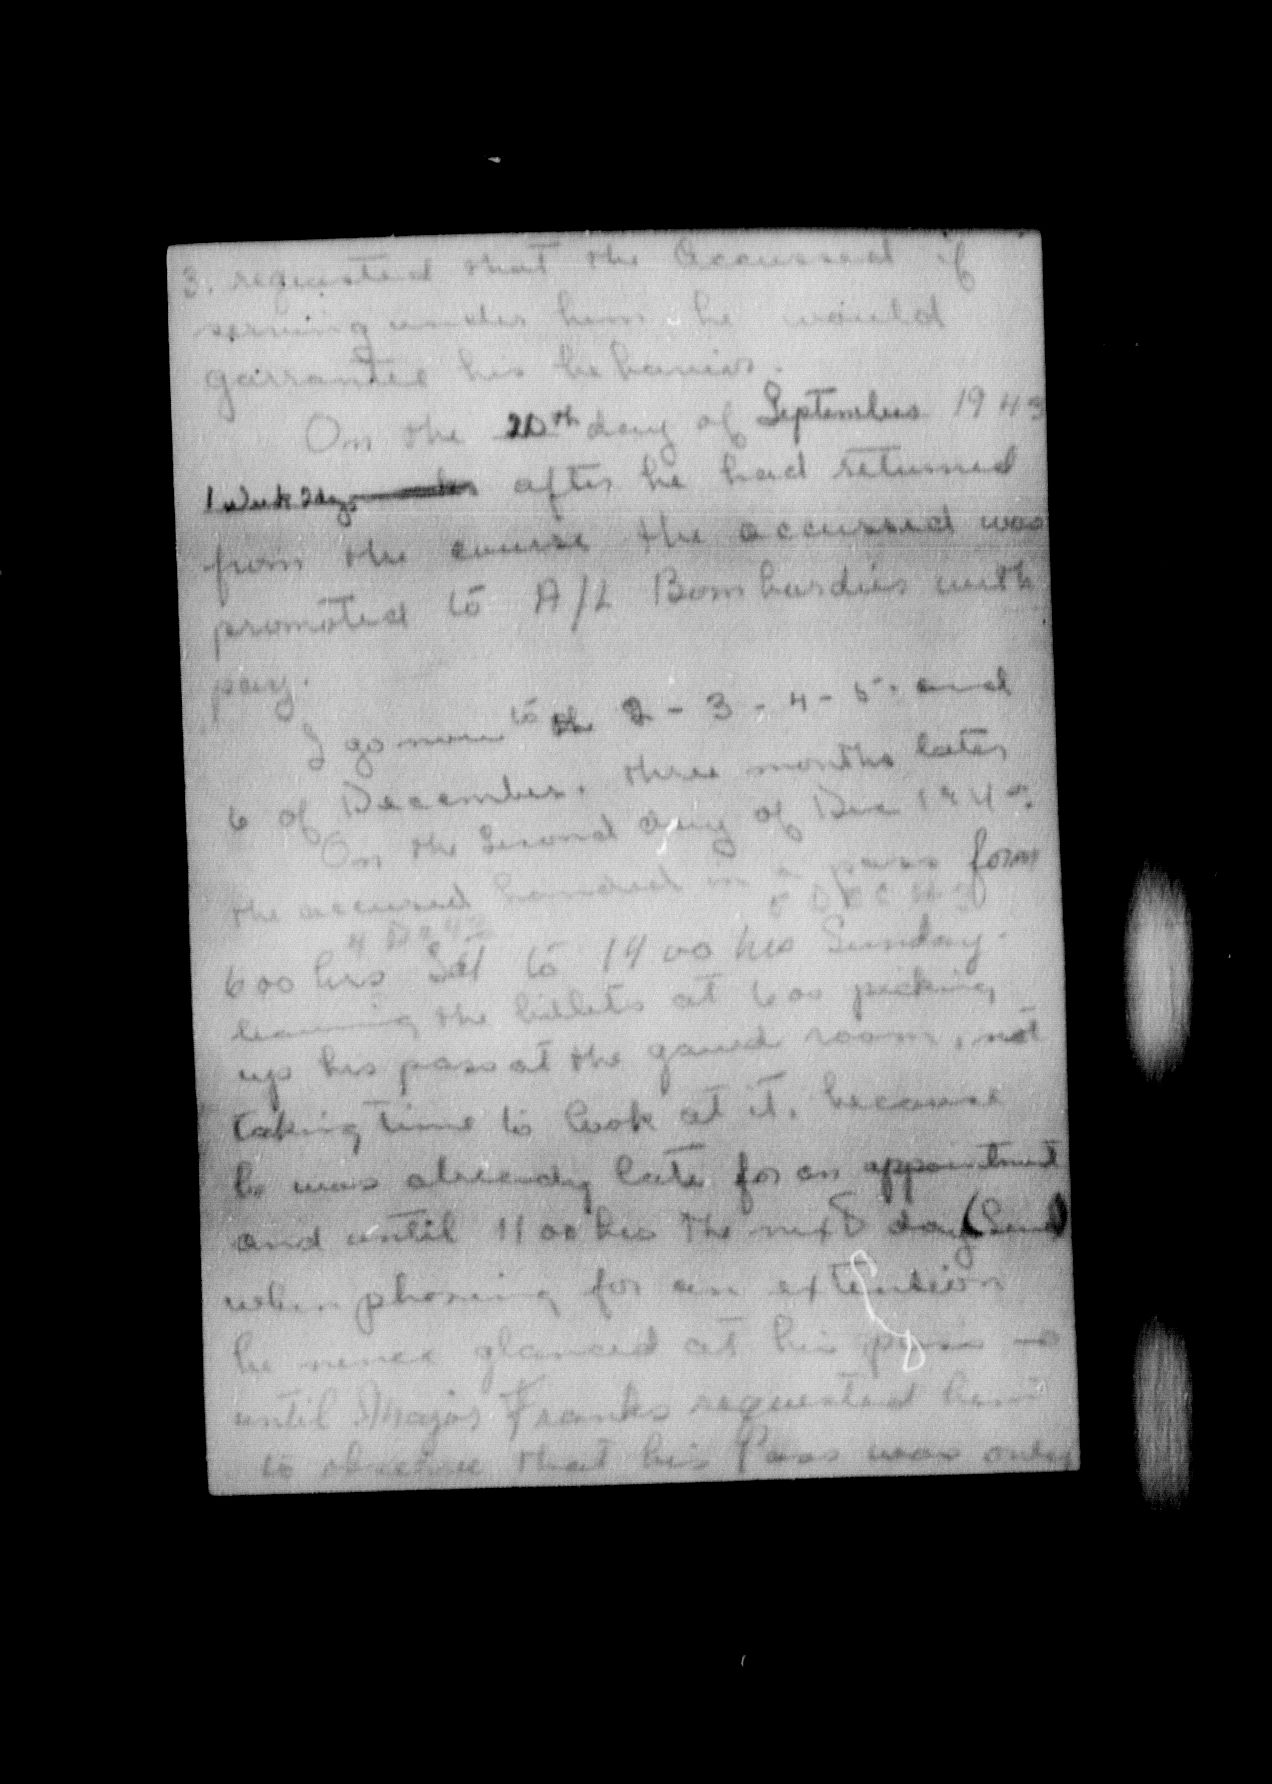 3. requested that the Accussed if
serving under him he would
garrantee his behavior.
On the 20th day of September 1943
1 week 2 days after he had returned
from the course the accussed was
promoted to A/L Bombardier with
pay.
I go now to the 2 - 3 - 4 - 5. and
6 of December. three months later
On the Second day of Dec 194
the accused handed in a pass form
4 Dec 43 5 DEC 43
600 hrs Sat to 1400 hrs Sunday.
leaving the billets at 600 picking
up his pass at the gaurd room, not
taking time to look at it. because
he was already late for an appointment
and until 1100 hrs the next day (Sund)
when phoning for an extention
he never glanced at his pass
until Major Franks requested him
to observe that his Pass was only